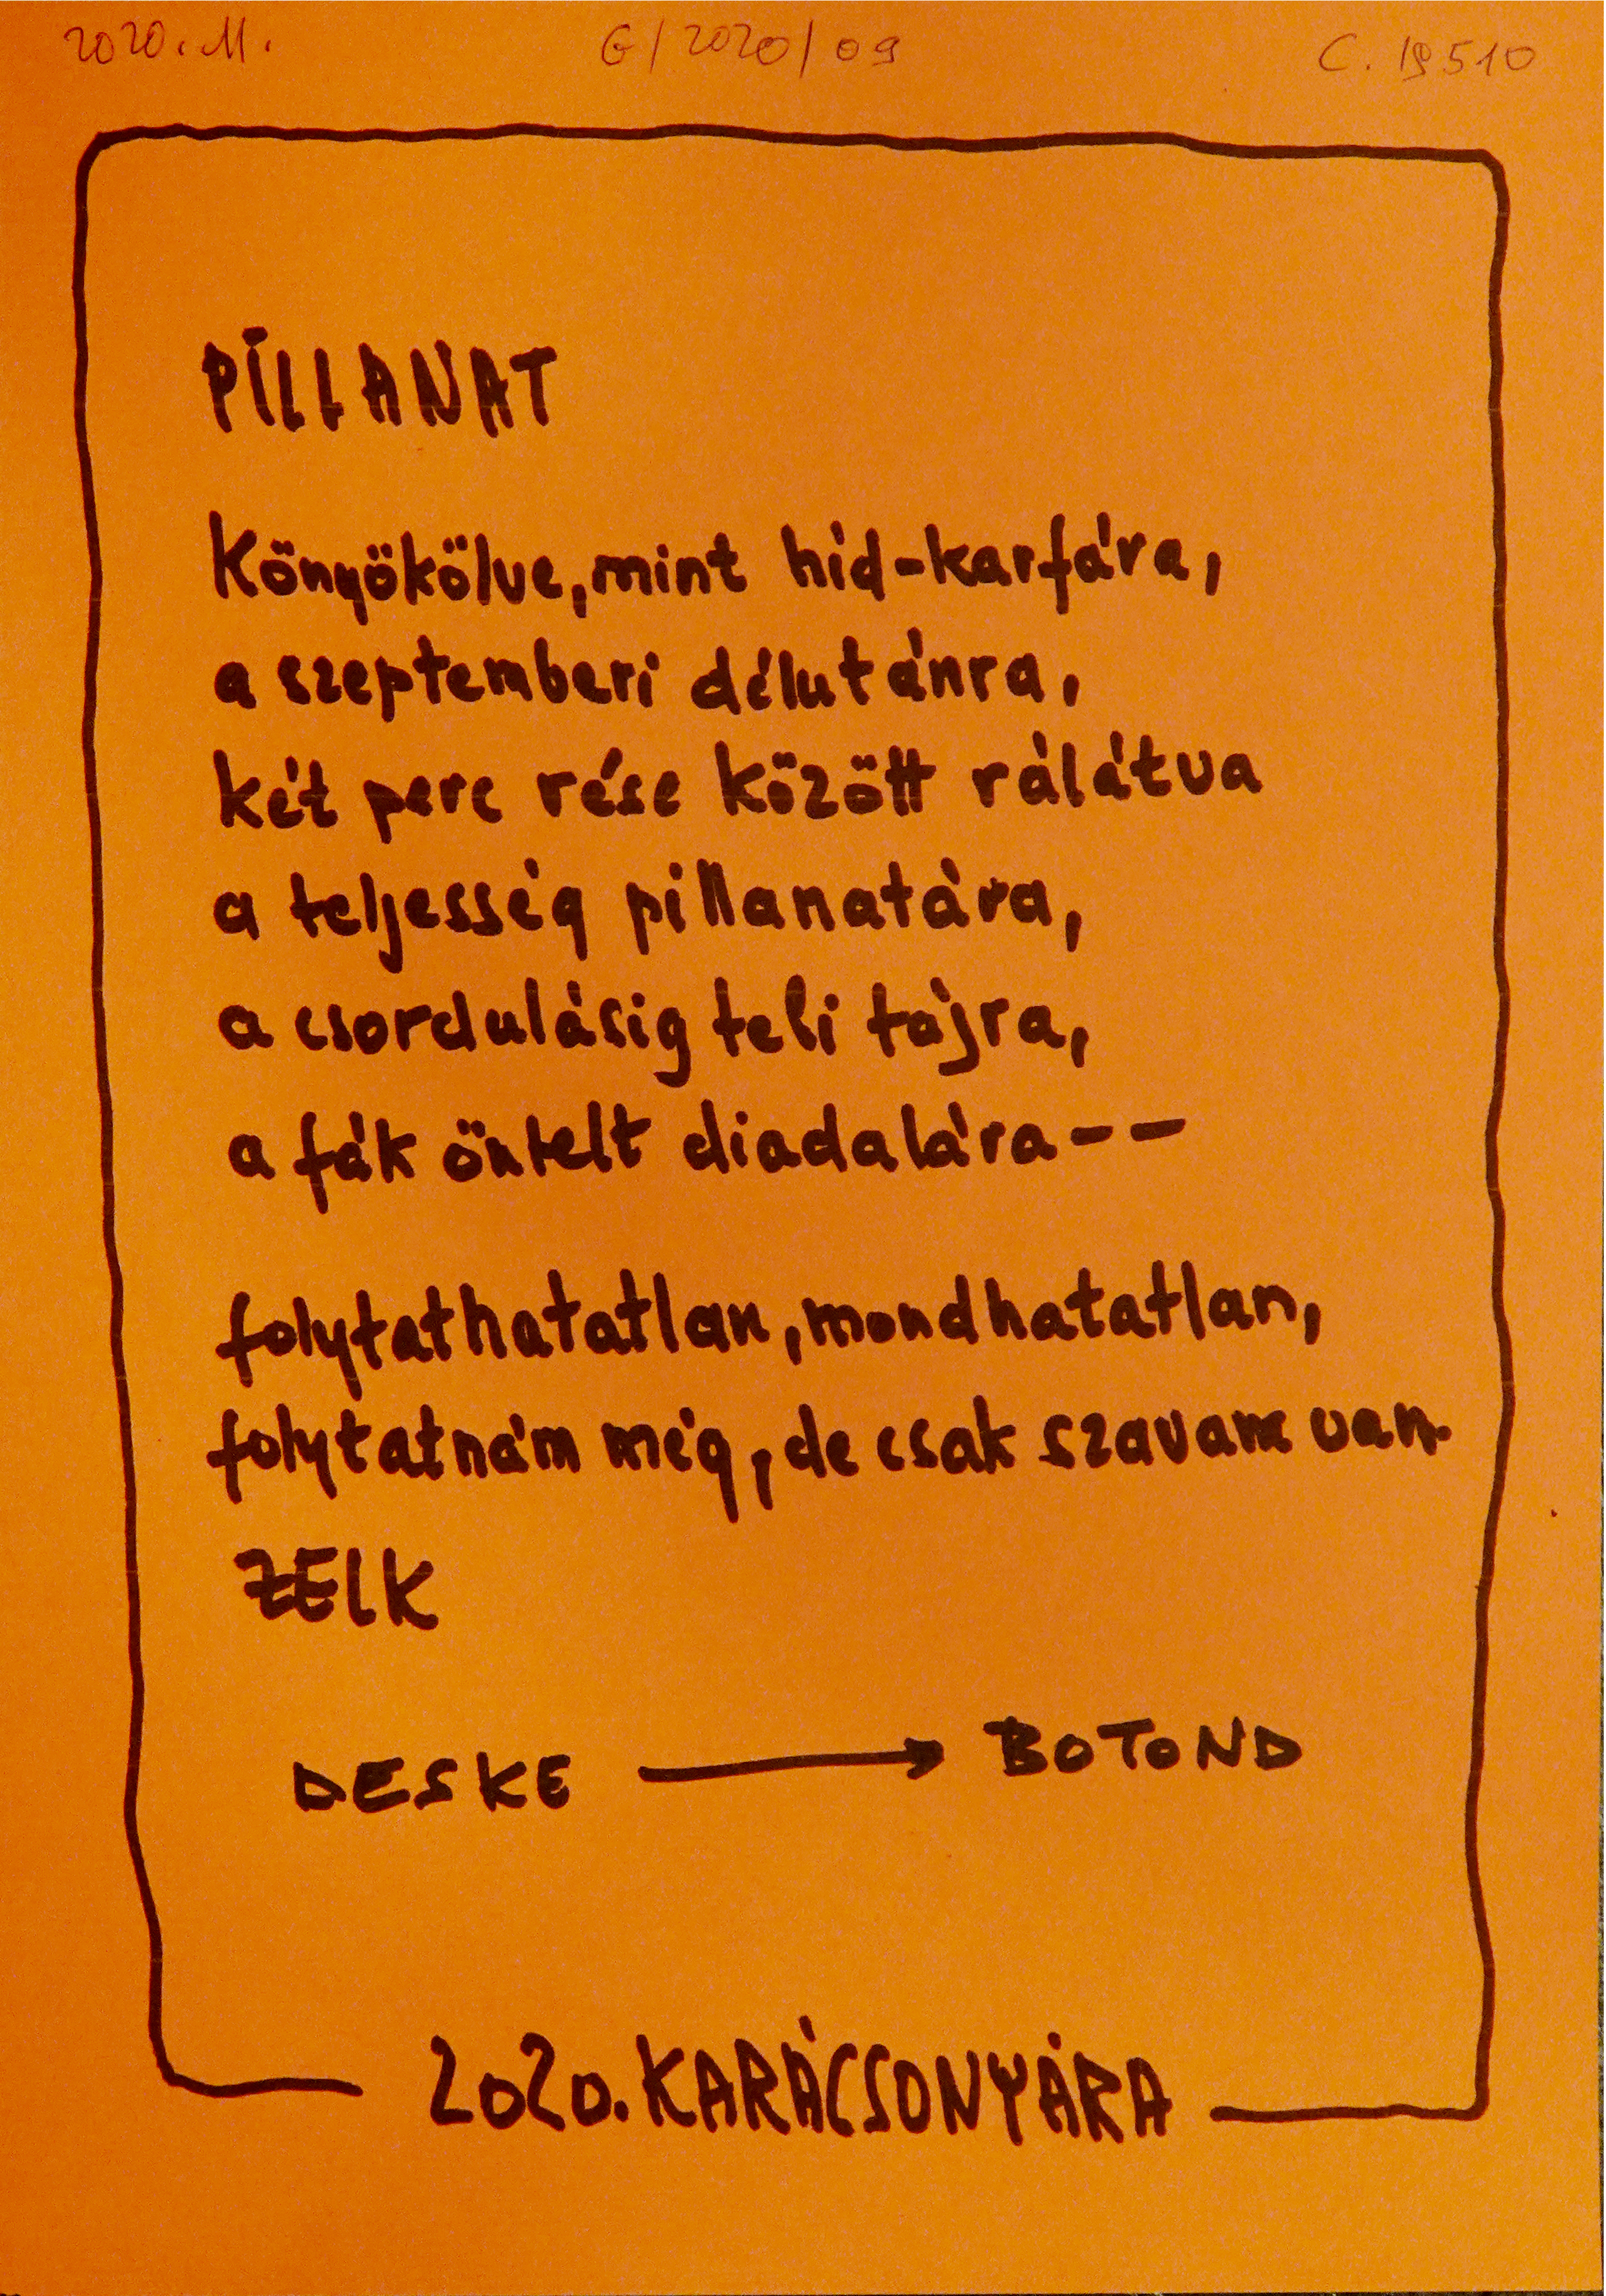 2020. M. G/2020/09 C. 19510
PILLANAT
Könyökölve, mint híd-karfára,
a szeptemberi délutánra,
két perc rése között rálátva
a teljesség pillanatára,
a csordulásig teli tájra,
a fák öntelt diadalára--
folytathatatlan, mondhatatlan,
folytatnám még, de csak szavam van.
ZELK
DESKE → BOTOND
2020. KARÁCSONYÁRA